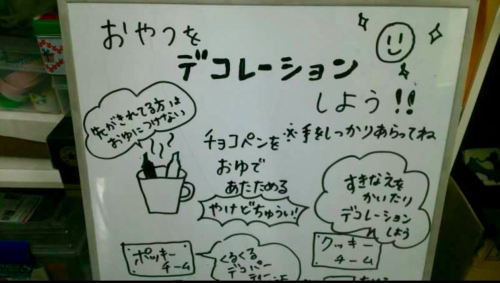 おやつを
デコレーション
しよう!!
先がきれてる方は
おゆにつけない
チョコペンを
おゆで
あたためる
※手をしっかりあらってね
やけどちゅうい!!
すきなえを
かいたり
デコレーション
しよう
ポッキー
チーム
くるくる
デコパー
クッキー
チーム